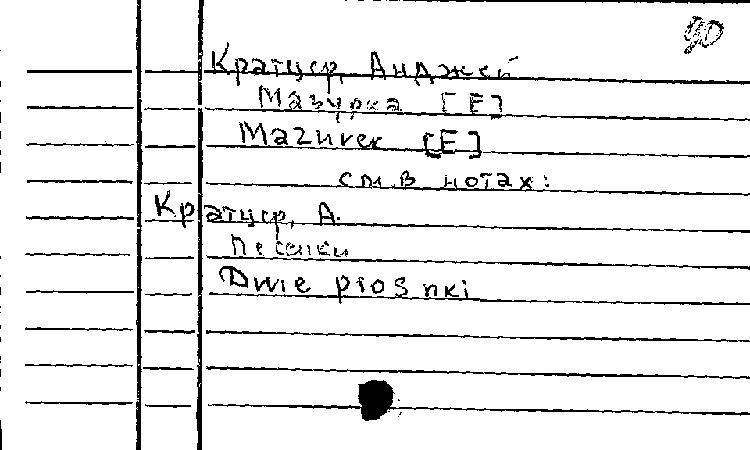 90
Кратцер, Анджей
Мазурка [E]
Mazurek [E]
см. в нотах:
Кратцер, А.
Песенки
Dwie piosnki